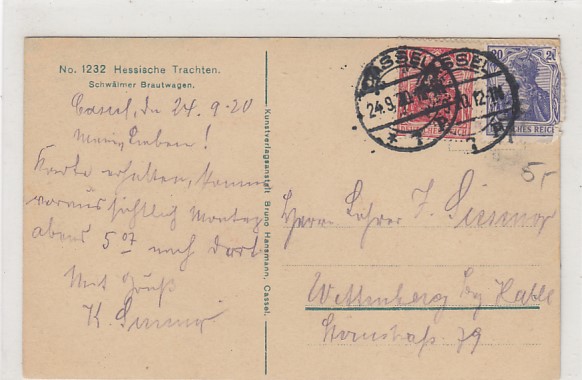 No. 1232 Hessische Trachten.
Schwälmer Brautwagen.
Cassel, d 24.9.20
Mein Lieben!
Karte erhalten, komme
voraussichtlich Montag
abens 5 07 nach dort.
Mit Gruß
K.
Kunstverlagsanstalt Bruno Hansmann, Cassel.
CASSEL
24.9.20
CASSEL
20.12-1N
20
DEUTSCHES REICH
5,-
Herrn Lehrer J.
Wittenberg Bz Halle
79